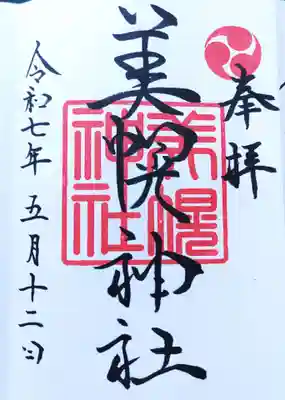 奉拝
美幌神社
美幌
神社
令和七年 五月十二日